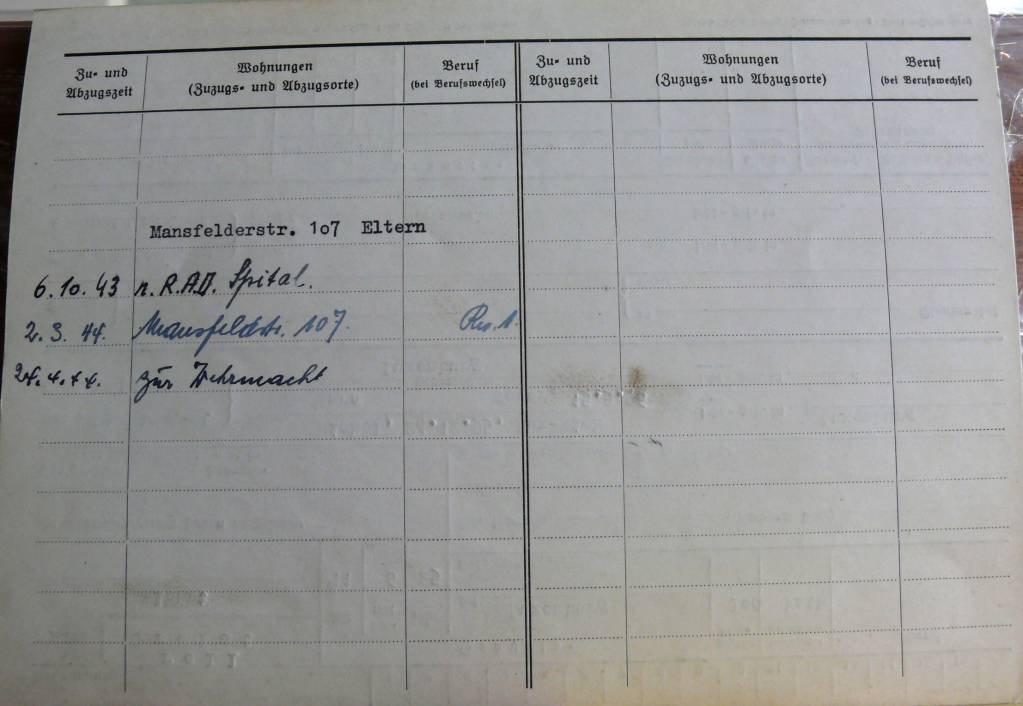 Zu- und Abzugszeit
Wohnungen
(Zuzugs- und Abzugsorte)
Beruf
(bei Berufswechsel)
Zu- und Abzugszeit
Wohnungen
(Zuzugs- und Abzugsorte)
Beruf
(bei Berufswechsel)
Mansfelderstr. 107 Eltern
6.10.43 n. R.A.D. Spital.
2.3.44. Mansfeldstr. 107.
24.4.44. zur Wehrmacht